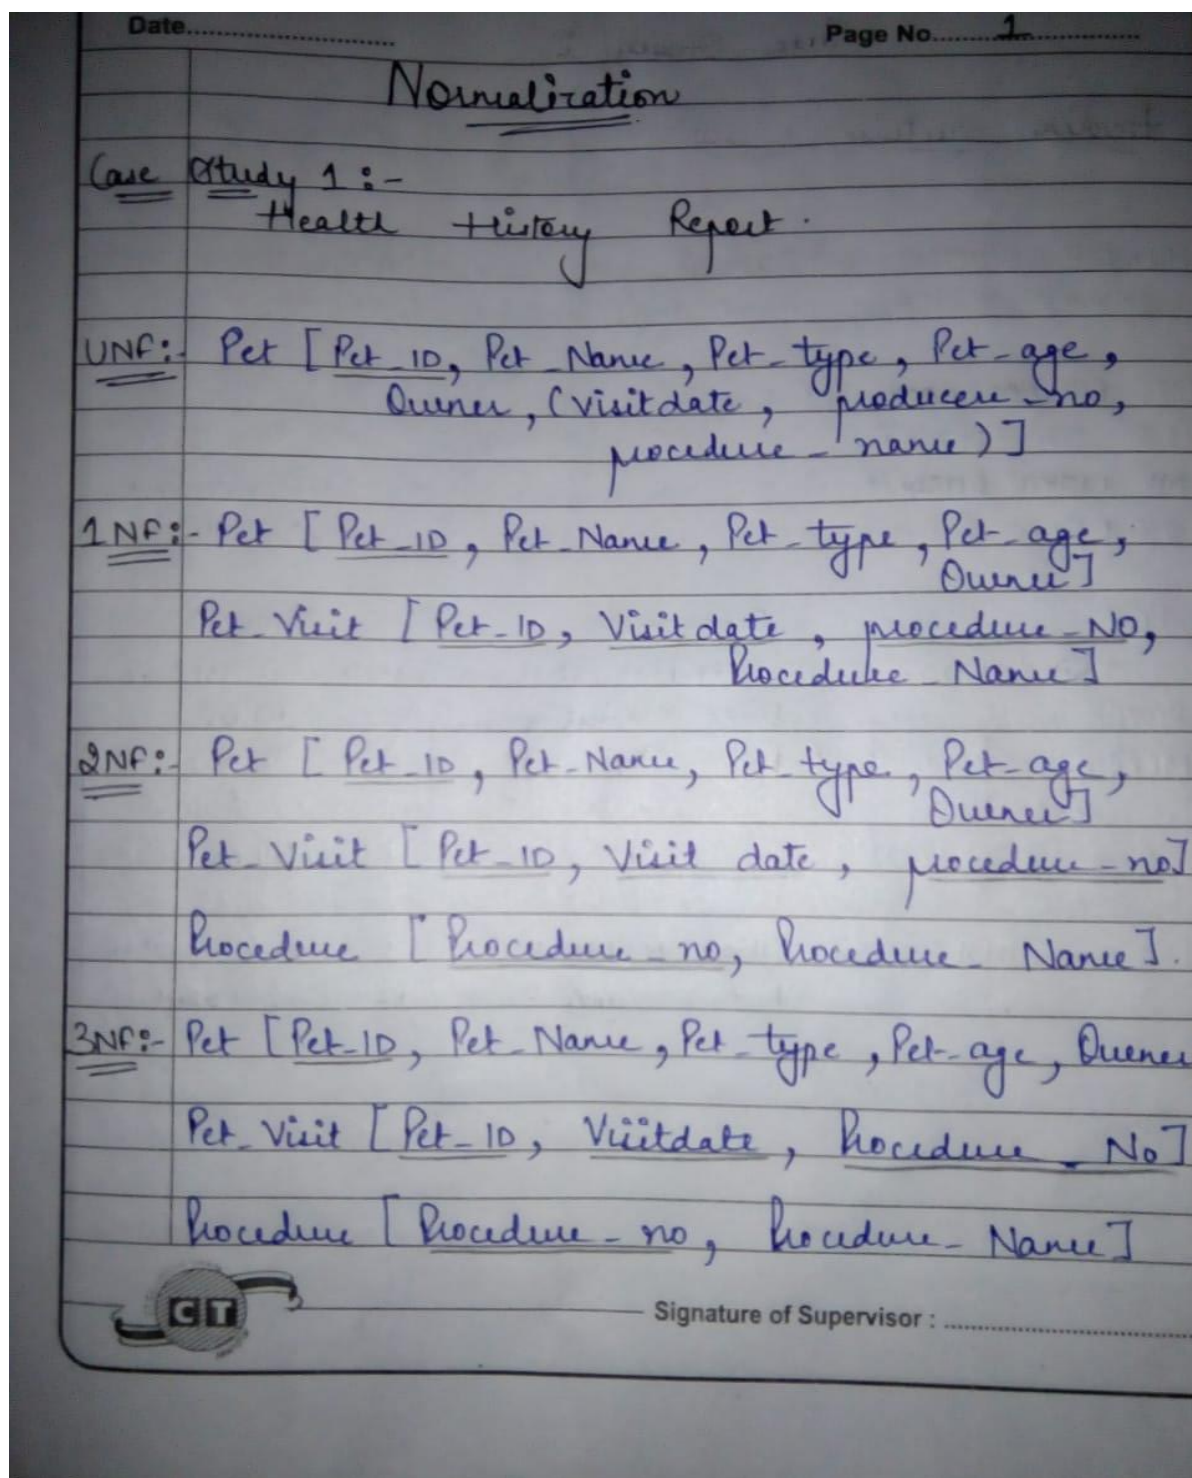 Date
Page No. 1
Normalization
Case Study 1 :-
Health History Report.
UNF:- Pet [Pet_ID, Pet_Name, Pet_type, Pet_age,
Owner, (visitdate, producere_no,
procedure_name)]
1NF:- Pet [Pet_ID, Pet_Name, Pet_type, Pet_age,
Owner]
Pet_Visit [Pet_ID, Visitdate, procedure_NO,
Procedure_Name]
2NF:- Pet [Pet_ID, Pet_Name, Pet_type, Pet_age,
Owner]
Pet_Visit [Pet_ID, Visit date, procedure_no]
Procedure [Procedure_no, Procedure_Name].
3NF:- Pet [Pet_ID, Pet_Name, Pet_type, Pet_age, Owner
Pet_Visit [Pet_ID, Visitdate, Procedure_No]
Procedure [Procedure_no, Procedure_Name]
CT
Signature of Supervisor :